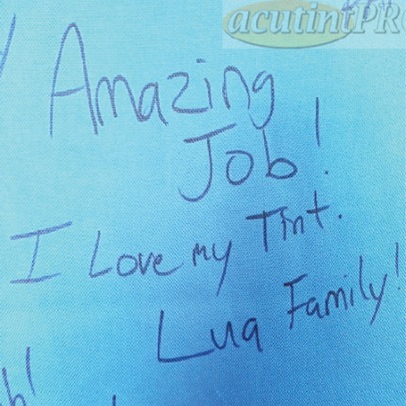 acutintPRO
Amazing
Job!
I Love my Tint.
Lua Family!